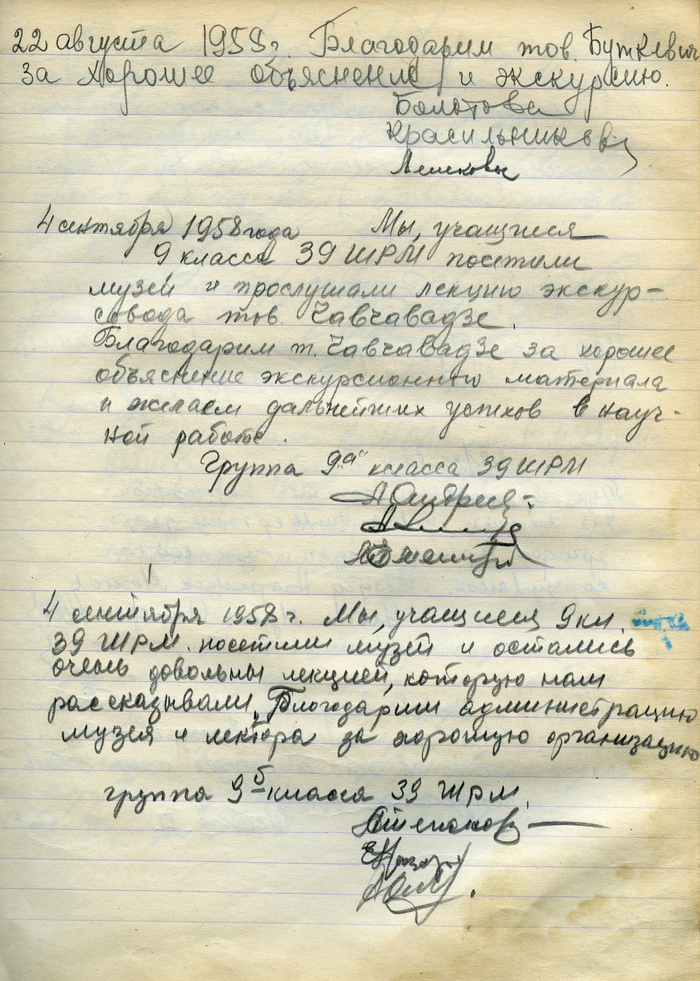 22 августа 1958 г. Благодарим тов. Буткевич
за хорошее объяснение и экскурсию.
Болотова
Красильникова
4 сентября 1958 года Мы, учащиеся
9 класса 39 ШРМ посетили
музей и прослушали лекцию экскур-
совода тов. Чавчавадзе.
Благодарим т. Чавчавадзе за хорошее
объяснение экскурсионного материала
и желаем дальнейших успехов в науч-
ной работе.
Группа 9"а" класса 39 ШРМ
4 сентября 1958 г. Мы, учащиеся 9 кл.
39 ШРМ. посетили музей и остались
очень довольны лекцией, которую нам
рассказывали, Благодарим администрацию
музея и лектора за хорошую организацию
группа 9б класса 39 ШРМ.
Степанов